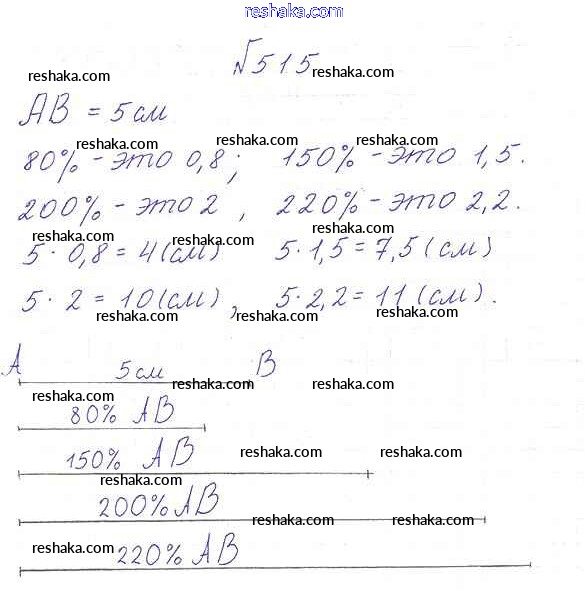 reshaka.com
№515
reshaka.com reshaka.com
AB = 5 см
reshaka.com reshaka.com reshaka.com
80% - это 0,8; 150% - это 1,5.
reshaka.com reshaka.com reshaka.com
200% - это 2, 220% - это 2,2.
reshaka.com reshaka.com reshaka.com
5 · 0,8 = 4 (см) 5 · 1,5 = 7,5 (см)
reshaka.com reshaka.com
5 · 2 = 10 (см), 5 · 2,2 = 11 (см).
reshaka.com reshaka.com
A 5 см B
reshaka.com reshaka.com
reshaka.com
80% AB
150% AB reshaka.com reshaka.com
reshaka.com
200% AB
reshaka.com reshaka.com
reshaka.com 220% AB